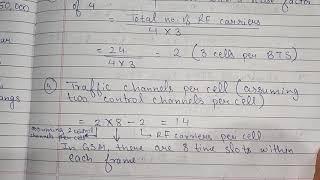 of 4
= Total no. of RF carriers
4 × 3
= 24 = 2 (3 cells per BTS)
4 × 3
Traffic channels per cell (assuming
two control channels per cell)
= 2 × 8 - 2 = 14
assuming 2 control
channels per cell
RF carriers per cell
In GSM, there are 8 time slots within
each frame.